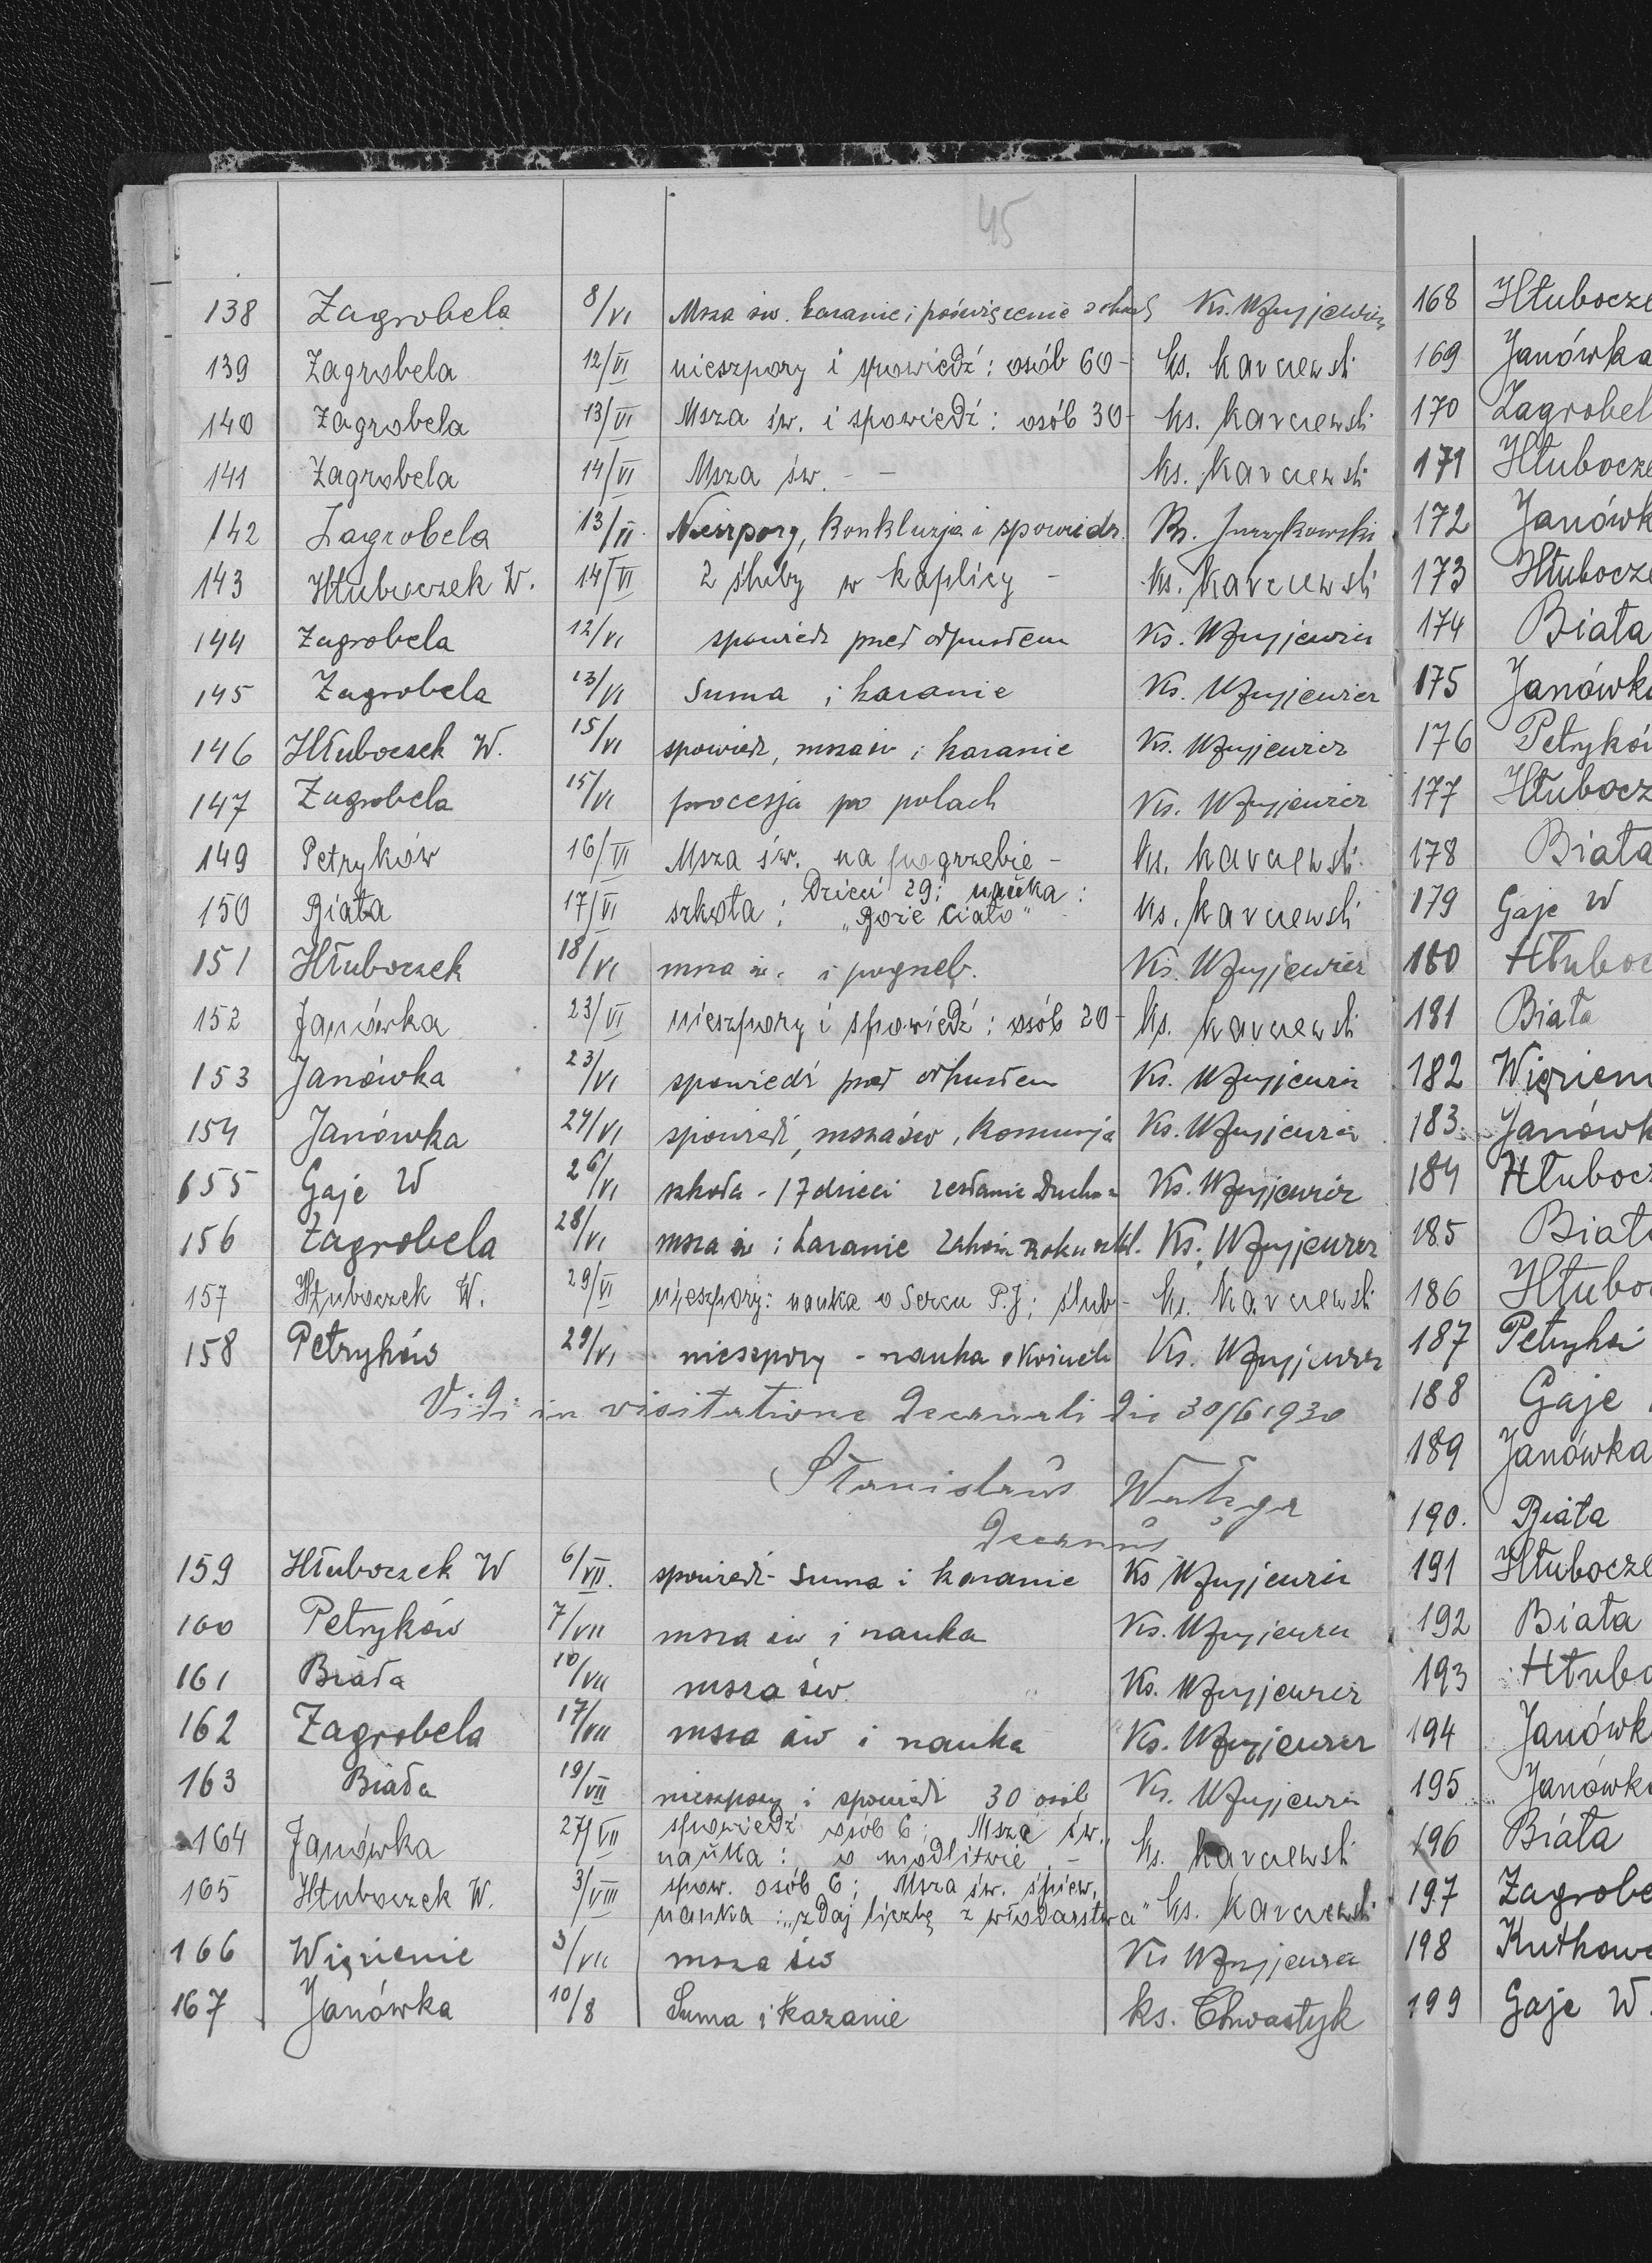 45
138 Zagrobela 8/VI Msza św. kazanie i poświęcenie Ks. Wzujewicz
139 Zagrobela 12/VI nieszpory i spowiedź: osób 60 - ks. Karczewski
140 Zagrobela 13/VI Msza św. i spowiedź: osób 30 - ks. Karczewski
141 Zagrobela 14/VI Msza św. - - ks. Karczewski
142 Zagrobela 13/VI. Nieszpory, Konkluzja i spowiedź. Ks. Jurzykowski
143 Hłuboczek W. 14/VI 2 śluby w kaplicy - ks. Karczewski
144 Zagrobela 12/VI spowiedź przed odpustem Ks.
145 Zagrobela 13/VI Suma i kazanie Ks.
146 Hłuboczek W. 15/VI spowiedź, msza św i kazanie Ks.
147 Zagrobela 15/VI procesja po polach Ks.
149 Petryków 16/VI Msza św. na pogrzebie - ks. Karczewski
150 Biała 17/VI szkoła: Dzieci 29; nauka:
„Boże Ciało" - ks. Karczewski
151 Hłuboczek 18/VI msza św. i pogrzeb. Ks.
152 Janówka 23/VI nieszpory i spowiedź: osób 20 - ks. Karczewski
153 Janówka 23/VI spowiedź przed odpustem Ks.
154 Janówka 24/VI spowiedź, msza św, Komunja Ks.
155 Gaje W 26/VI szkoła - 17 dzieci Zesłanie Ducha Ks.
156 Zagrobela 28/VI msza św i kazanie roku szkl. Ks.
157 Hłuboczek W. 29/VI nieszpory: nauka o Sercu P.J; ślub - ks. Karczewski
158 Petryków 29/VI nieszpory - nauka o Ks.
Vidi in visitatione Decanali die 30/6 1930
Stanislaus Wałęga
Decanus
159 Hłuboczek W 6/VII. spowiedź - Suma i kazanie Ks
160 Petryków 7/VII msza św i nauka Ks.
161 Biała 10/VII msza św. Ks.
162 Zagrobela 17/VII msza św i nauka Ks.
163 Biała 19/VII nieszpory i spowiedź 30 osób Ks.
164 Janówka 27/VII spowiedź osób 6; Msza św.,
nauka: o modlitwie. - ks. Karczewski
165 Hłuboczek W. 3/VIII spow. osób 6; Msza św. śpiew,
nauka: „zdaj liczbę z włodarstwa" ks. Karczewski
166 Więzienie 3/VII msza św Ks
167 Janówka 10/8 Suma i Kazanie ks. Chwastyk
168 Hłubocze
169 Janówka
170 Zagrobel
171 Hłubocze
172 Janówk
173 Hłubocze
174 Biała
175 Janówk
176 Petryków
177 Hłubocz
178 Biała
179 Gaje W
180 Hłuboc
181 Biała
182 Więzieni
183. Janówk
184 Hłubocz
185 Biał
186 Hłubo
187 Petryków
188 Gaje
189 Janówka
190. Biała
191 Hłubocze
192 Biała
193 Hłubo
194 Janówk
195 Janówk
196 Biała
197 Zagrobe
198 Kutkow
199 Gaje W.